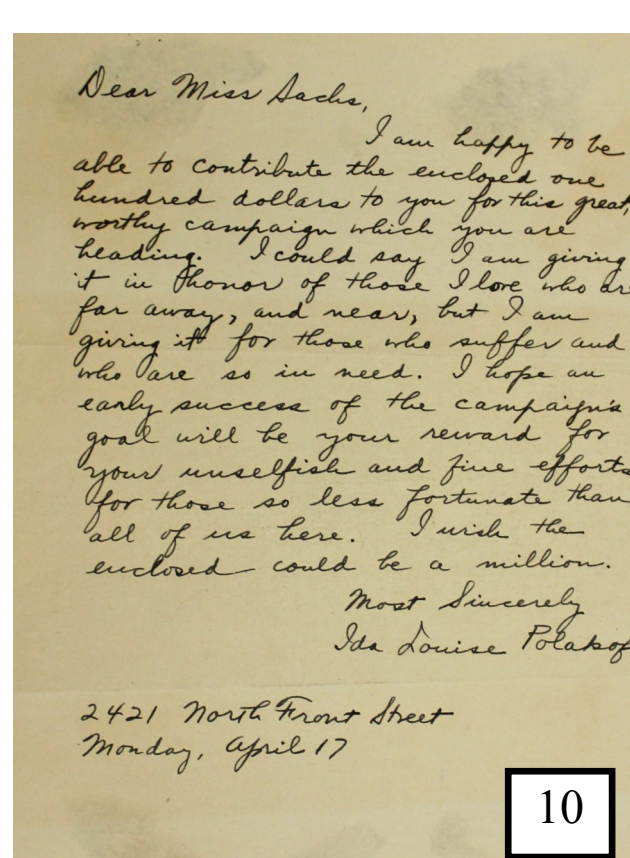 Dear Miss Sachs,
I am happy to be
able to contribute the enclosed one
hundred dollars to you for this great,
worthy campaign which you are
heading. I could say I am giving
it in honor of those I love who are
far away, and near, but I am
giving it for those who suffer and
who are so in need. I hope an
early success of the campaign's
goal will be your reward for
your unselfish and fine efforts
for those so less fortunate than
all of us here. I wish the
enclosed could be a million.
Most Sincerely
Ida Louise Polakof
2421 North Front Street
Monday, April 17
10